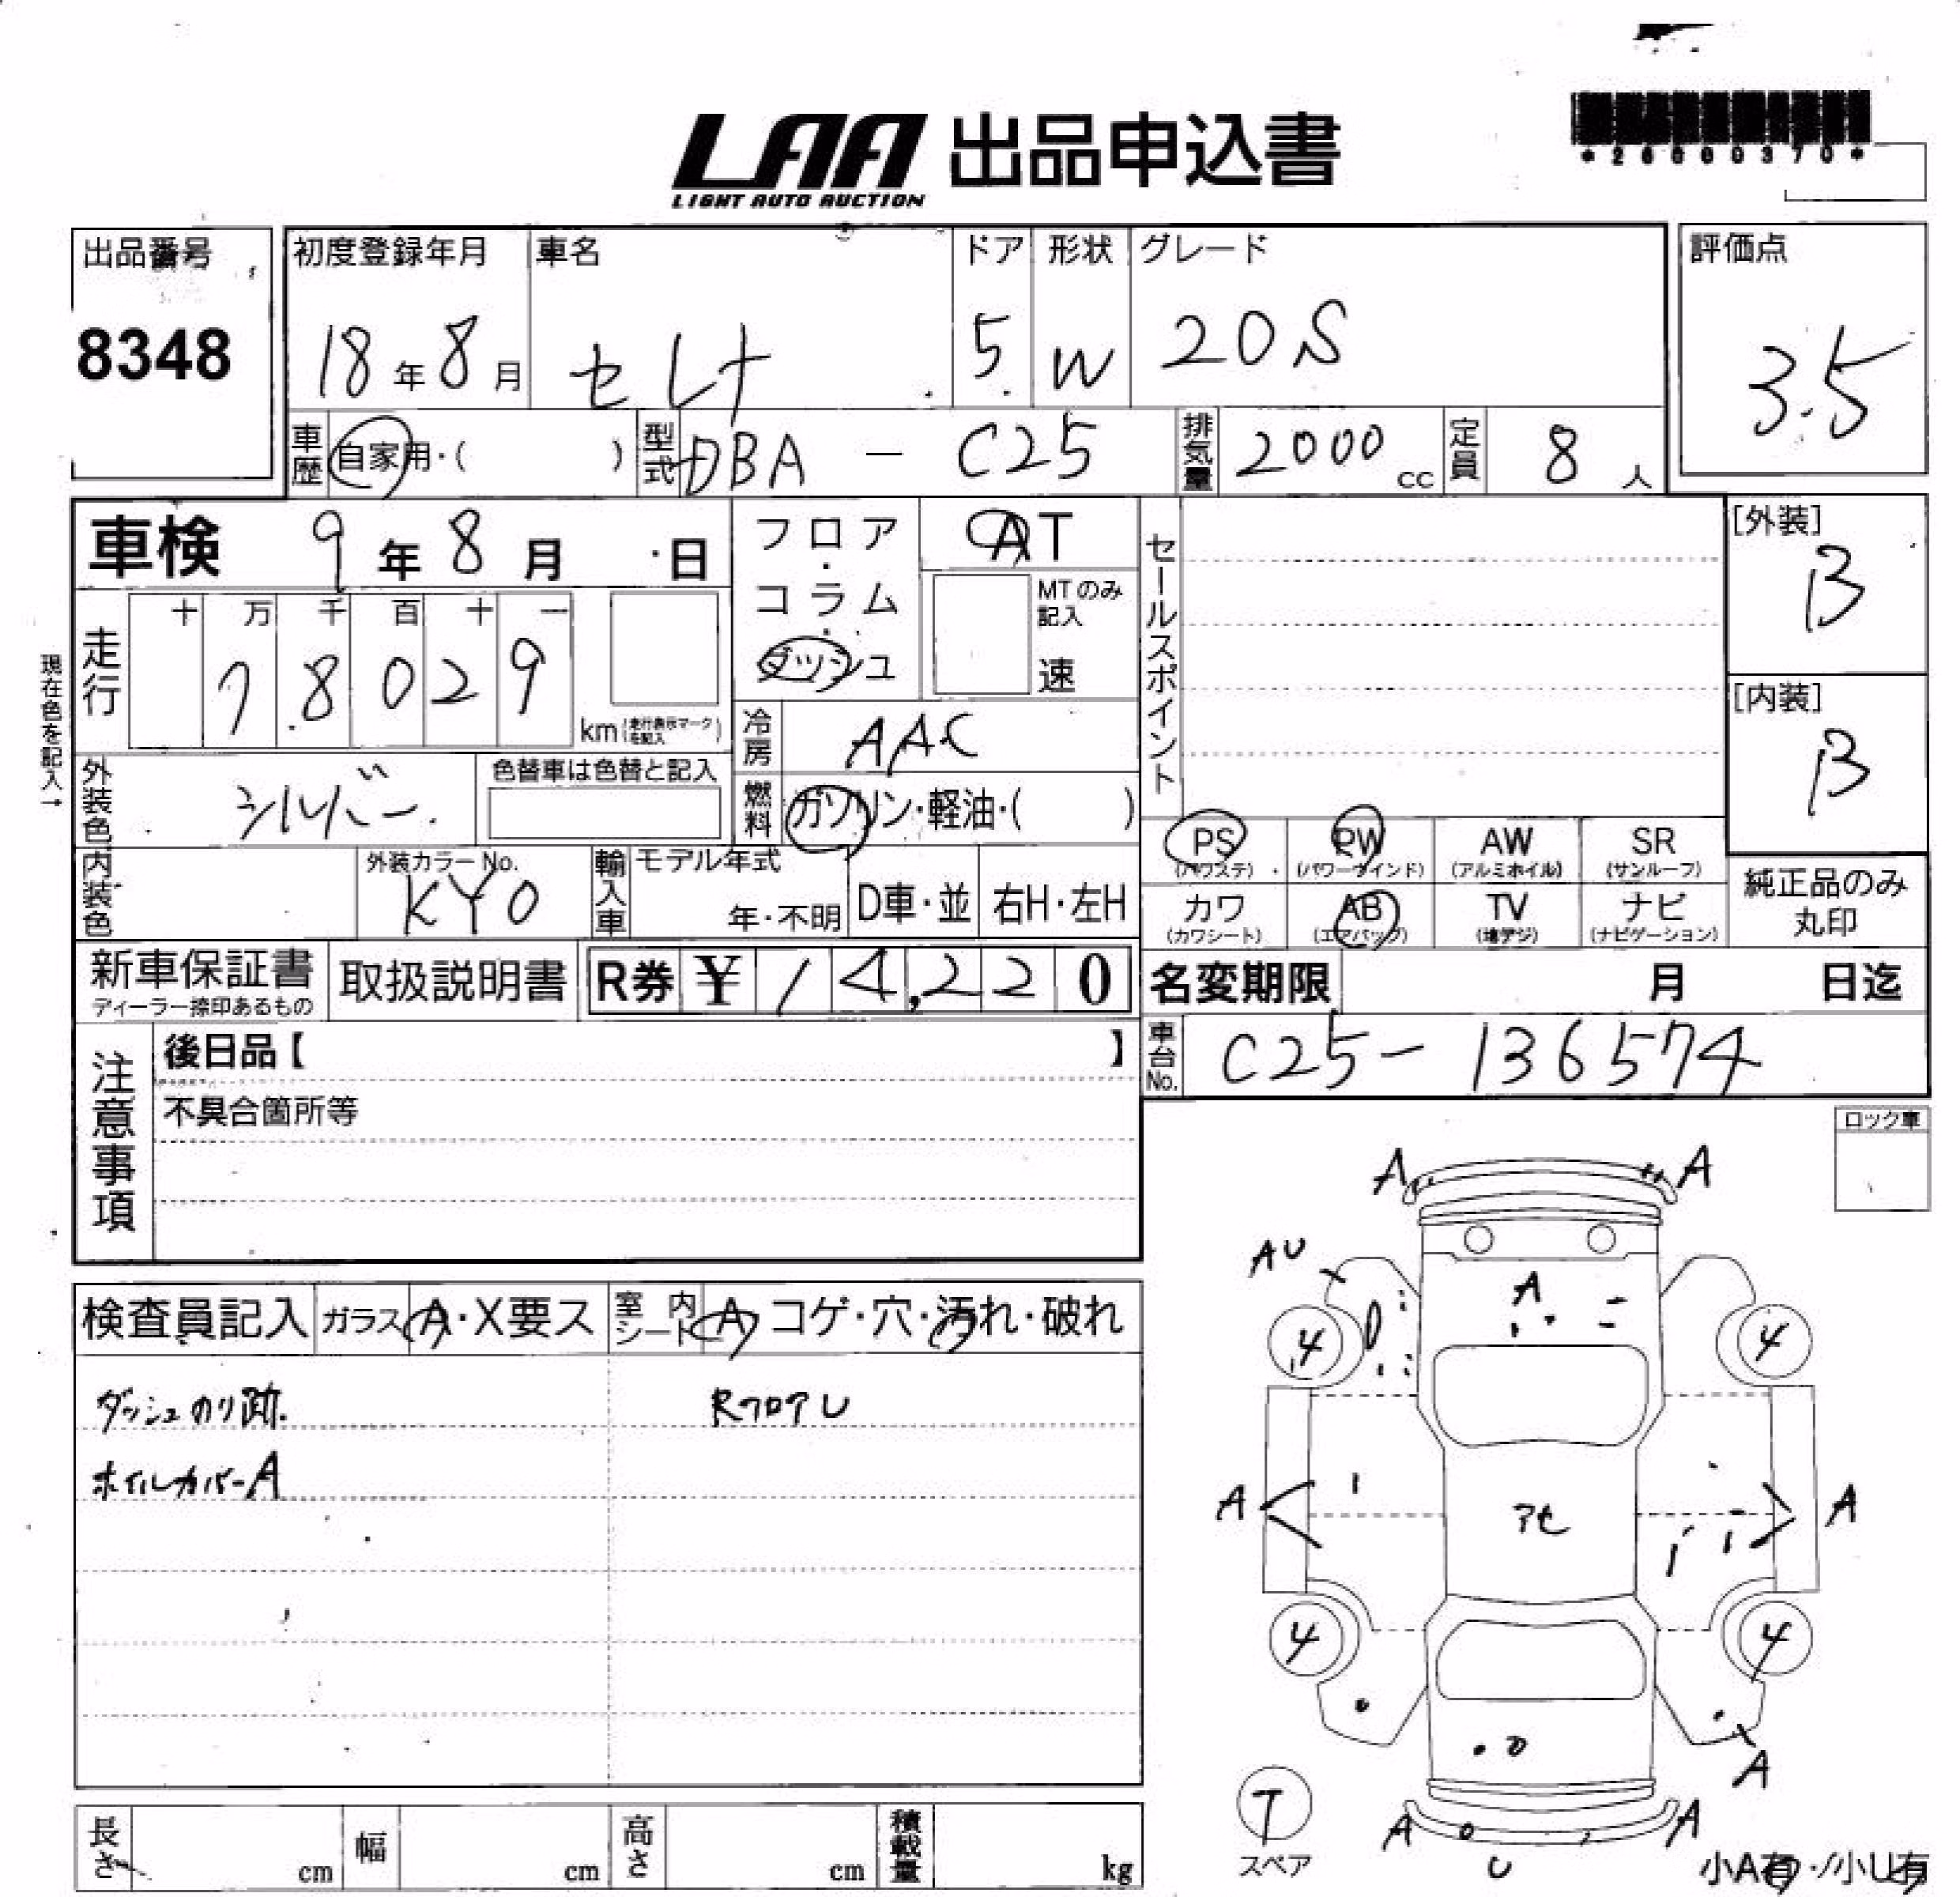 *26000370*
LAA 出品申込書
LIGHT AUTO AUCTION
出品番号 8348
初度登録年月 18年8月
車名 セレナ
ドア 5
形状 W
グレード 20S
評価点 3.5
車歴 自家用・( )
型式 DBA - C25
排気量 2000 cc
定員 8 人
車検 9年8月 日
フロア・コラム・ダッシュ
AT
MTのみ記入 速
セールスポイント
[外装] B
[内装] B
現在色を記入→
走行 十 万 千 百 十 一
7 8 0 2 9
km(走行表示マークを記入)
冷房 AAC
外装色 シルバー
色替車は色替と記入
燃料 ガソリン・軽油・( )
PS (パワステ)
PW (パワーウインド)
AW (アルミホイル)
SR (サンルーフ)
カワ (カワシート)
AB (エアバッグ)
TV (地デジ)
ナビ (ナビゲーション)
純正品のみ丸印
内装色
外装カラーNo. KY0
輸入車 モデル年式 年・不明
D車・並
右H・左H
新車保証書 ディーラー捺印あるもの
取扱説明書
R券 ¥14,220
名変期限 月 日迄
車台No. C25-136574
注意事項
後日品【 】
不具合箇所等
ロック車
検査員記入
ガラス A・X要ス
室内シート A コゲ・穴・汚れ・破れ
ダッシュのり跡.
RフロアU
ホイルカバーA
A A
AU
A
4 4
A アセ A
4 4
A
A A
U
T
スペア
小A有・小U有
長さ cm
幅 cm
高さ cm
積載量 kg